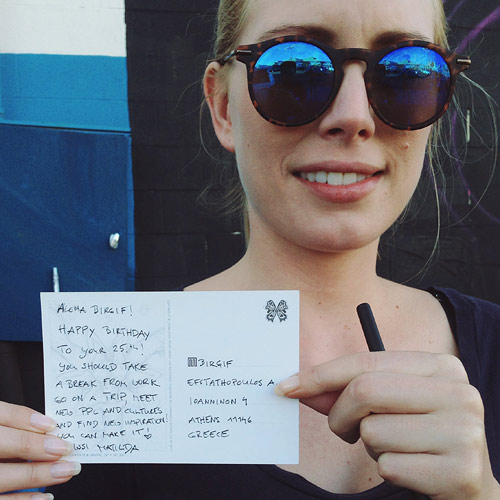 ALOHA BIRGIF!
HAPPY BIRTHDAY
TO YOUR 25.TH!
YOU SHOULD TAKE
A BREAK FROM WORK
GO ON A TRIP, MEET
NEW PPL AND CULTURES
AND FIND NEW INSPIRATION!
YOU CAN MAKE IT!
MATILDA
BIRGIF
EFSTATHOPOULOS A.
IOANNINON 4
ATHENS 11146
GREECE